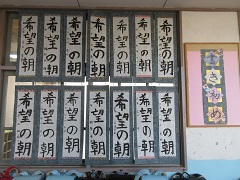 希望の朝
希望の朝
希望の朝
希望の朝
希望の朝
希望の朝
希望の朝
希望の朝
希望の朝
希望の朝
希望の朝
希望の朝
希望の朝
希望の朝
書き初め